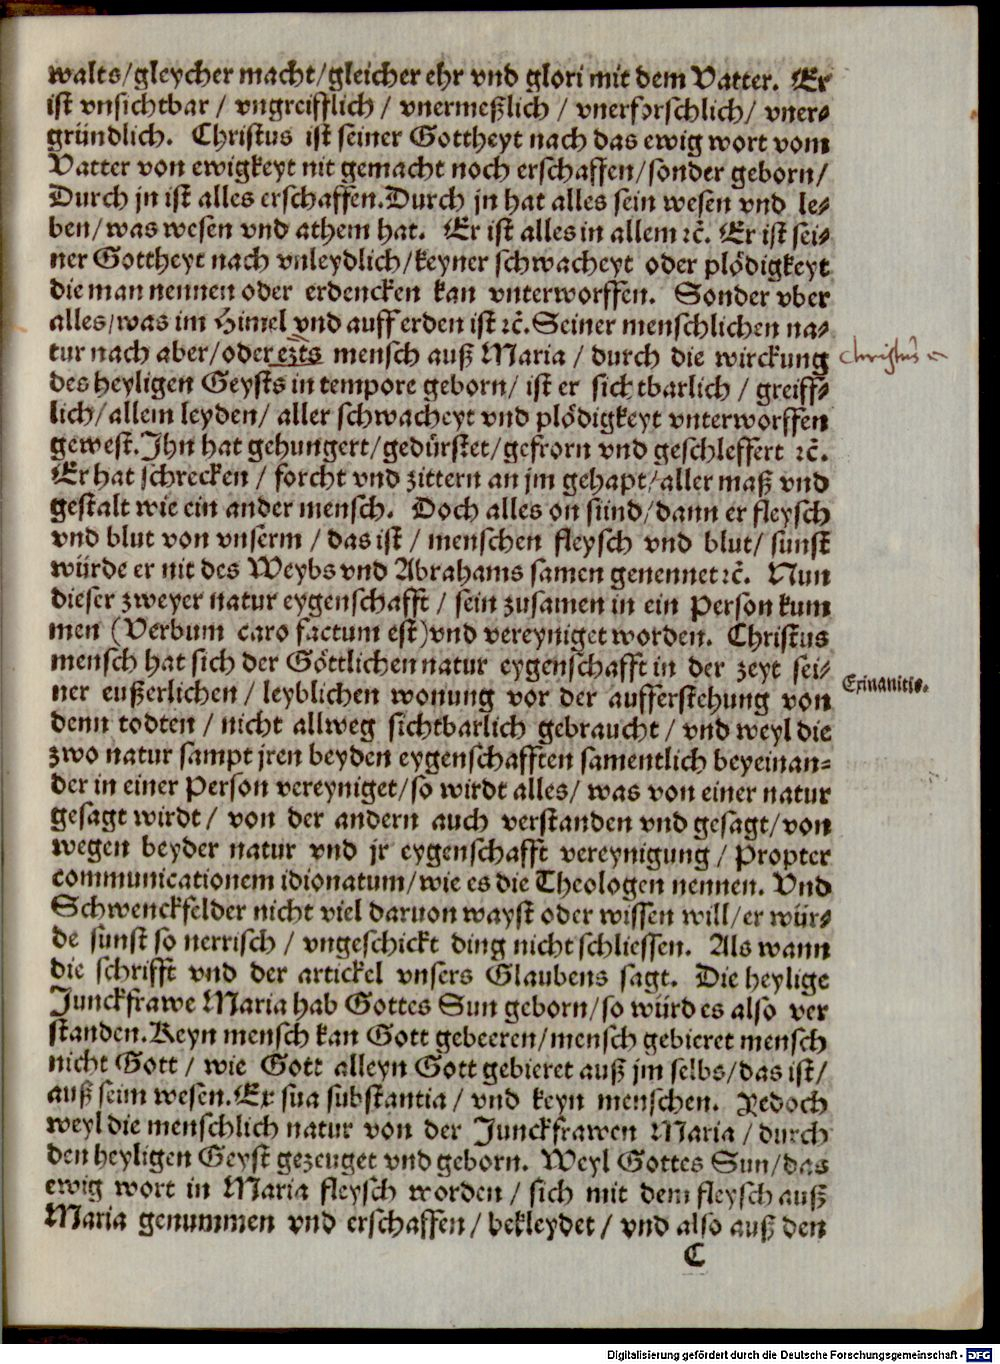 walts/gleycher macht/gleicher ehr vnd glori mit dem Vatter. Er
ist vnsichtbar / vngreifflich / vnermeßlich / vnerforschlich/ vner⸗
gründlich. Christus ist seiner Gottheyt nach das ewig wort vom
Vatter von ewigkeyt nit gemacht noch erschaffen/sonder geborn/
Durch jn ist alles erschaffen.Durch jn hat alles sein wesen vnd le⸗
ben/was wesen vnd athem hat. Er ist alles in allem ꝛc̃. Er ist sei⸗
ner Gottheyt nach vnleydlich/keyner schwacheyt oder plödigkeyt
die man nennen oder erdencken kan vnterworffen. Sonder vber
alles/was im Himel vnd auff erden ist ꝛc̃.Seiner menschlichen na⸗
tur nach aber/oder mensch auß Maria / durch die wirckung
Christus
des heyligen Geysts in tempore geborn/ ist er sichtbarlich / greiff⸗
lich/allem leyden/ aller schwacheyt vnd plödigkeyt vnterworffen
gewest.Jhn hat gehungert/gedürstet/gefrorn vnd geschleffert ꝛc̃.
Er hat schrecken / forcht vnd zittern an jm gehapt/aller maß vnd
gestalt wie ein ander mensch. Doch alles on sünd/dann er fleysch
vnd blut von vnserm / das ist / menschen fleysch vnd blut/ sunst
würde er nit des Weybs vnd Abrahams samen genennet ꝛc̃. Nun
dieser zweyer natur eygenschafft / sein zusamen in ein Person kum
men (Verbum caro factum est)vnd vereyniget worden. Christus
mensch hat sich der Göttlichen natur eygenschafft in der zeyt sei⸗
ner eußerlichen / leyblichen wonung vor der aufferstehung von
Exinanitio.
denn todten / nicht allweg sichtbarlich gebraucht / vnd weyl die
zwo natur sampt jren beyden eygenschafften samentlich beyeinan⸗
der in einer Person vereyniget/so wirdt alles/ was von einer natur
gesagt wirdt / von der andern auch verstanden vnd gesagt/von
wegen beyder natur vnd jr eygenschafft vereynigung / Propter
communicationem idionatum/wie es die Theologen nennen. Vnd
Schwenckfelder nicht viel daruon wayst oder wissen will/er wür⸗
de sunst so nerrisch / vngeschickt ding nicht schliessen. Als wann
die schrifft vnd der artickel vnsers Glaubens sagt. Die heylige
Junckfrawe Maria hab Gottes Sun geborn/so würd es also ver
standen.Keyn mensch kan Gott gebeeren/mensch gebieret mensch
nicht Gott / wie Gott alleyn Gott gebieret auß jm selbs/das ist/
auß seim wesen.Ex sua substantia / vnd keyn menschen. Yedoch
weyl die menschlich natur von der Junckfrawen Maria / durch
den heyligen Geyst gezeuget vnd geborn. Weyl Gottes Sun/das
ewig wort in Maria fleysch worden / sich mit dem fleysch auß
Maria genummen vnd erschaffen/ bekleydet / vnd also auß den
C
Digitalisierung gefördert durch die Deutsche Forschungsgemeinschaft - DFG